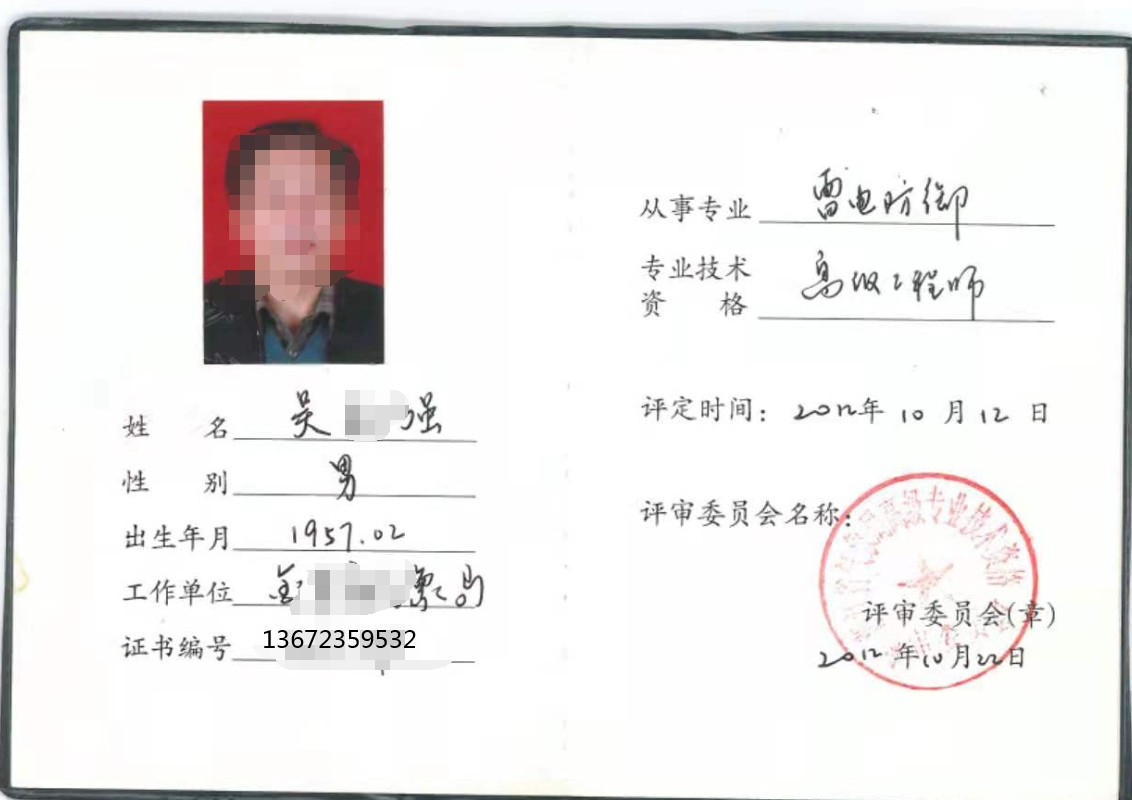 姓 名 吴 强
性 别 男
出生年月 1957.02
工作单位
证书编号 13672359532
从事专业 雷电防御
专业技术
资 格 高级工程师
评定时间: 2012年 10 月 12 日
评审委员会名称:
高级专业技术资格
评审委员会(章)
2012 年10月22日